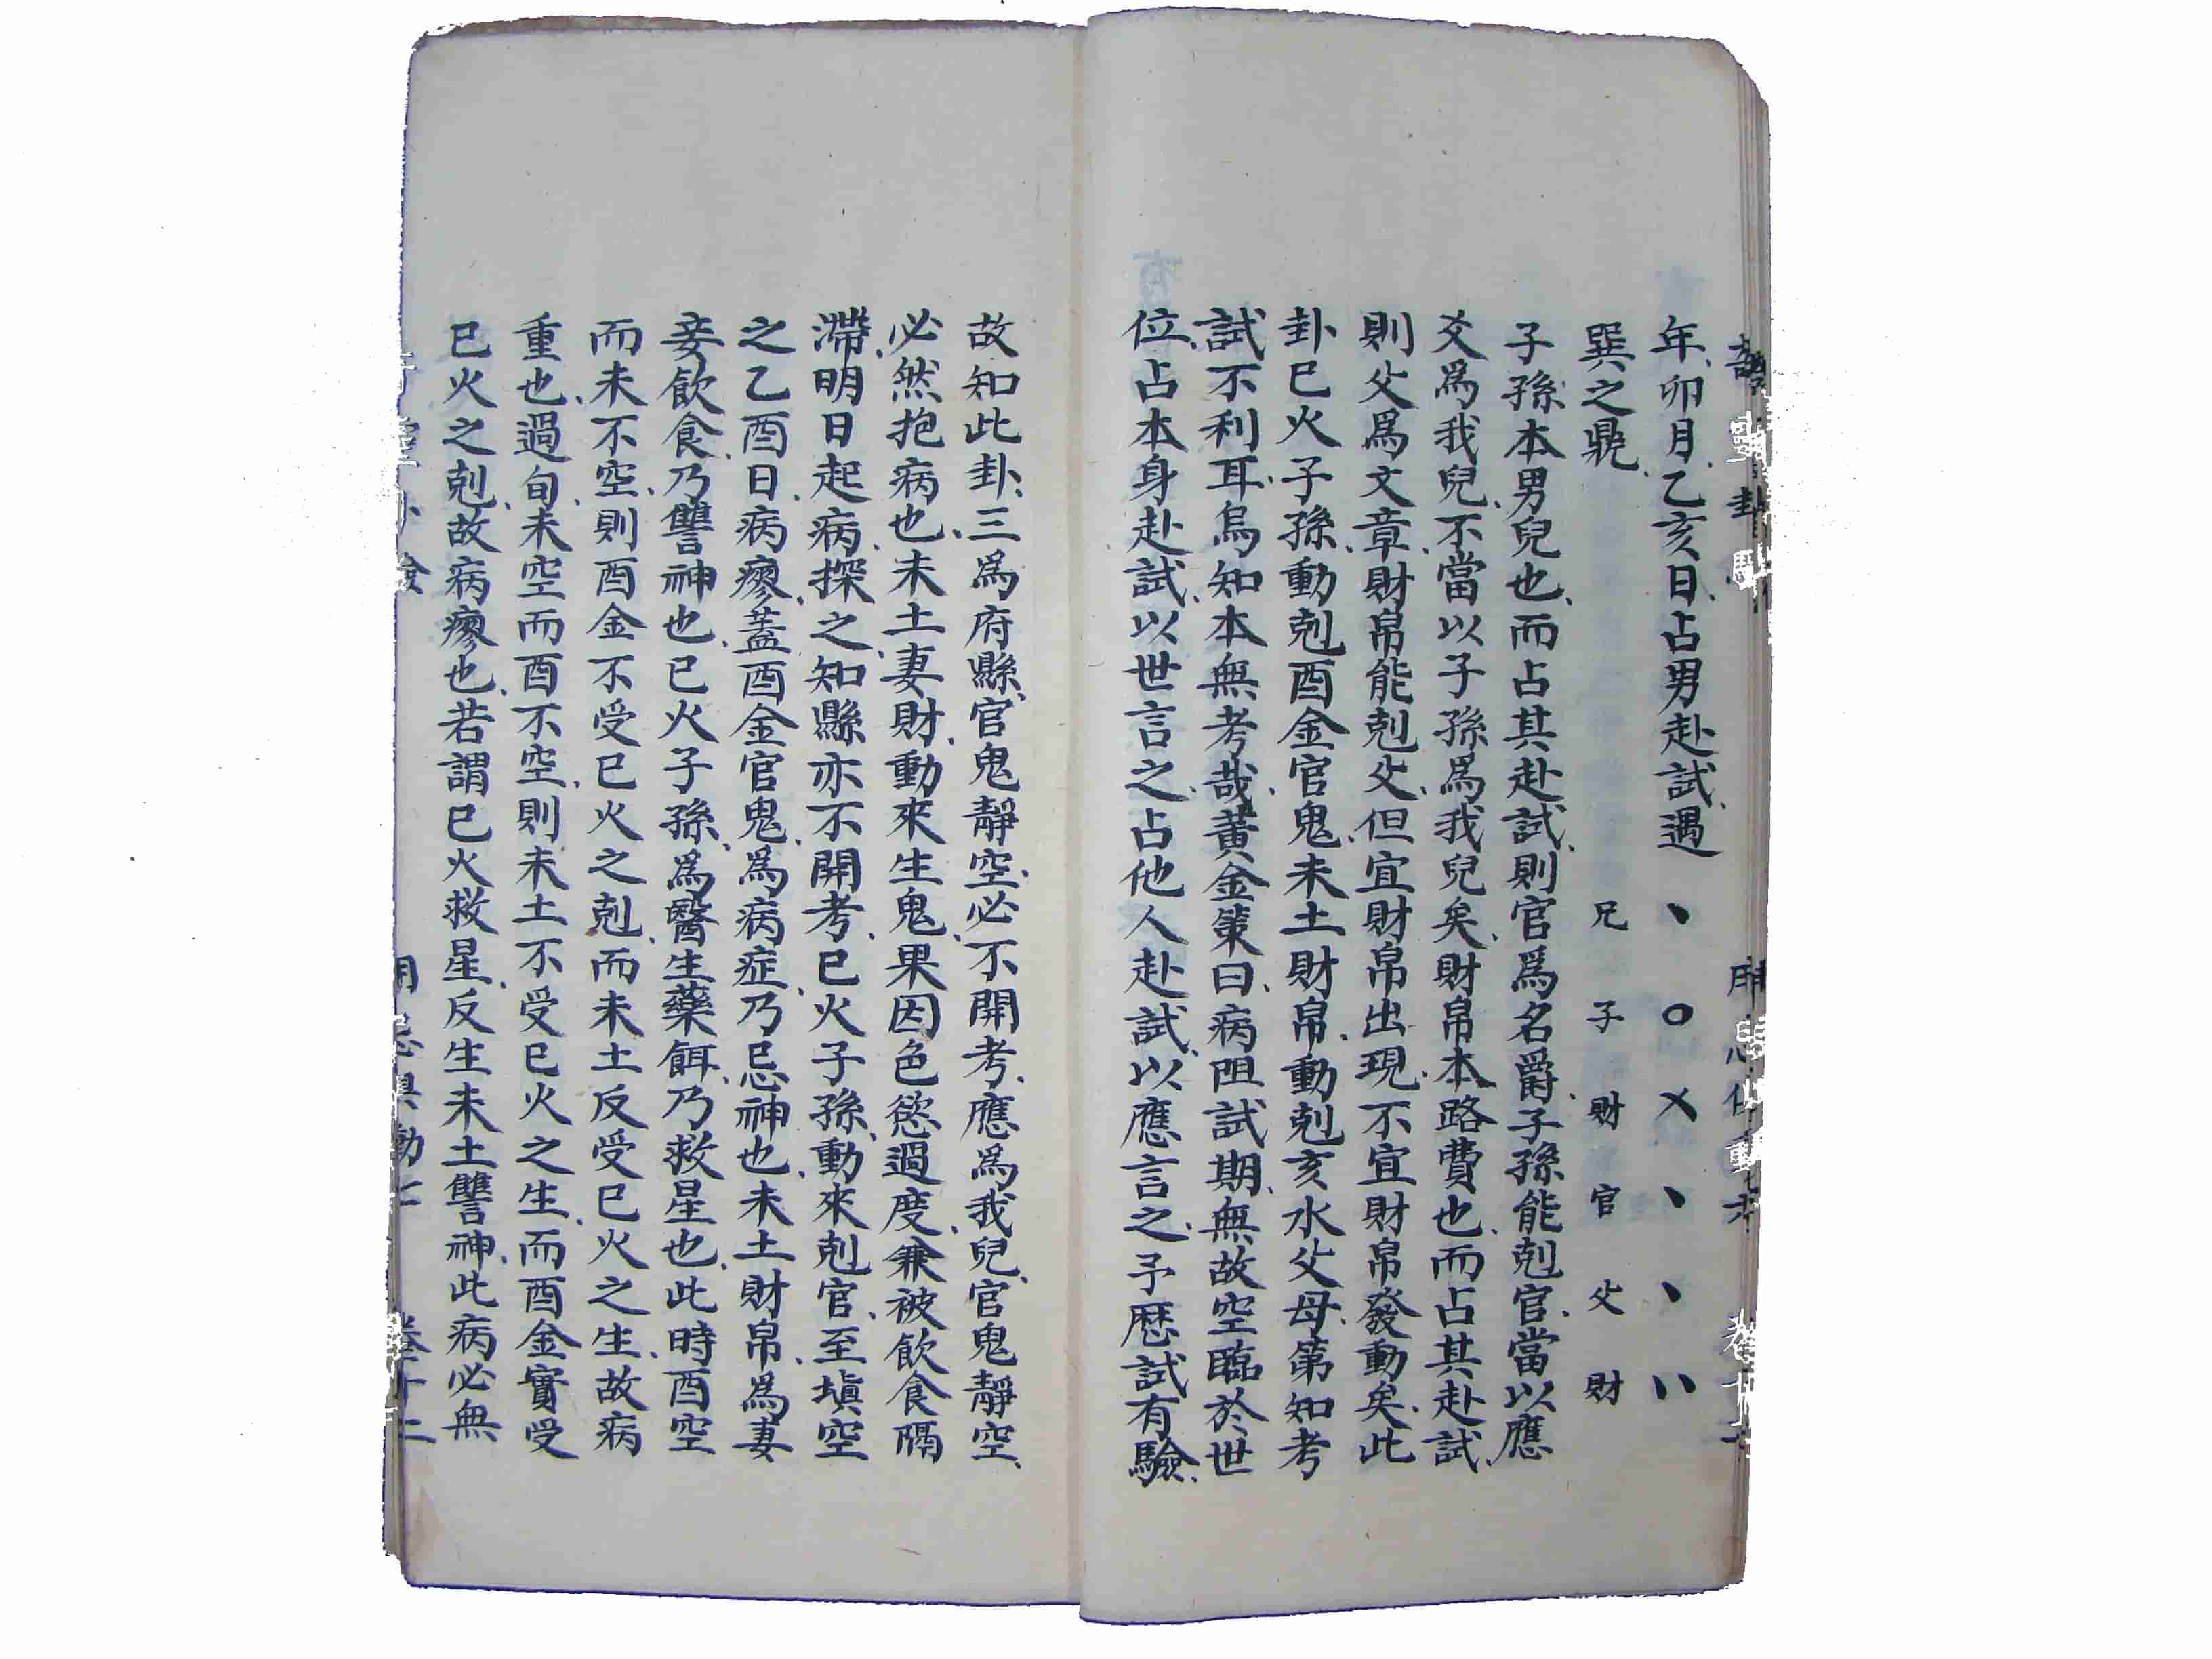 年、卯月、乙亥日、占男赴試、遇、〇乂、、〃
巽之鼎、兄子財官父財
子孫本男兒也、而占其赴試、則官爲名爵、子孫能剋官、當以應
爻爲我兒、不當以子孫爲我兒矣、財帛本路費也、而占其赴試、
則父爲文章、財帛能剋父、但宜財帛出現、不宜財帛發動矣、此
卦巳火子孫、動剋酉金官鬼、未土財帛、動剋亥水父母、第知考
試不利耳、烏知本無考哉、黃金策曰、病阻試期、無故空臨於世
位、占本身赴試、以世言之、占他人赴試、以應言之、予歷試有驗、
故知此卦、三爲府縣、官鬼靜空、必不開考、應爲我兒、官鬼靜空、
必然抱病也、未土妻財、動來生鬼、果因色慾過度、兼被飲食隔
滯、明日起病、探之、知縣亦不開考、巳火子孫、動來剋官、至塡空
之乙酉日、病瘳、蓋酉金官鬼、爲病症、乃忌神也、未土財帛、爲妻
妾飲食、乃讐神也、巳火子孫、爲醫生藥餌、乃救星也、此時酉空
而未不空、則酉金不受巳火之剋、而未土反受巳火之生、故病
重也、過旬、未空而酉不空、則未土不受巳火之生、而酉金實受
巳火之剋、故病瘳也、若謂巳火救星、反生未土讐神、此病必無